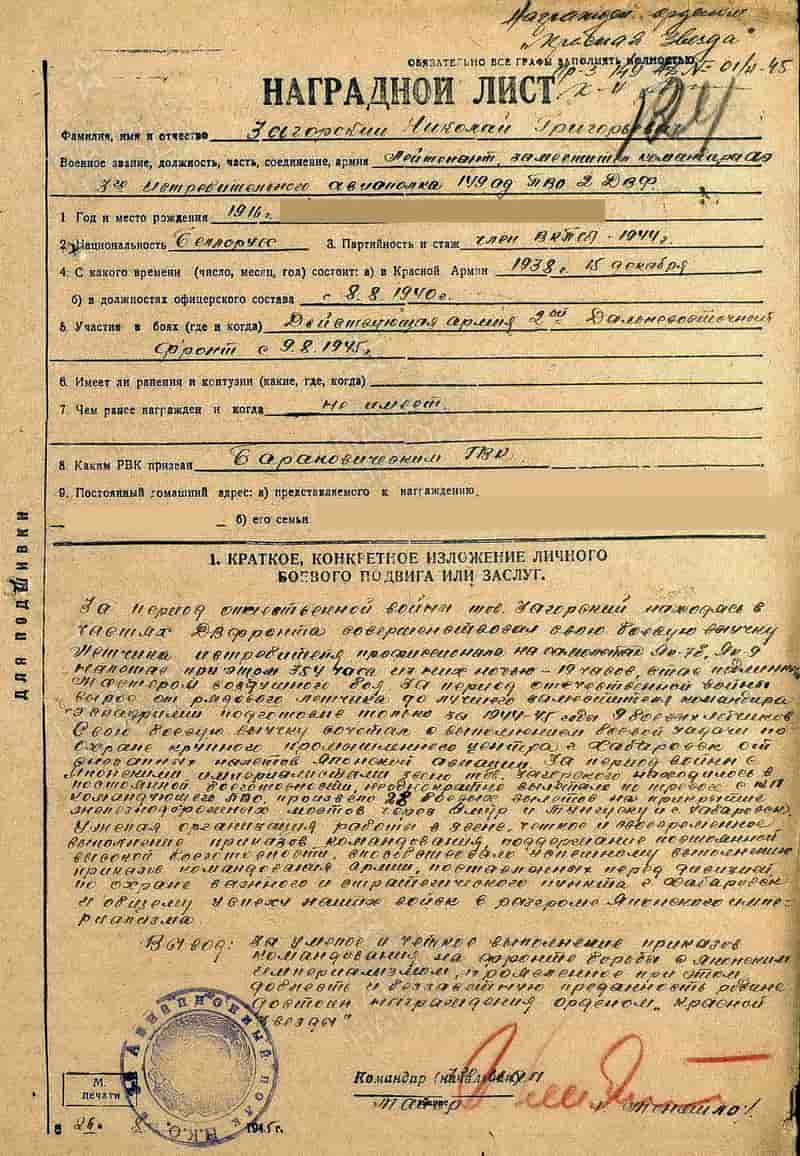 Награжден орденом
"Красная Звезда"
ОБЯЗАТЕЛЬНО ВСЕ ГРАФЫ ЗАПОЛНЯТЬ ПОЛНОСТЬЮ
НАГРАДНОЙ ЛИСТ
Фамилия, имя и отчество Загорский Николай Григорьевич
Военное звание, должность, часть, соединение, армия Лейтенант, заместитель командира
истребительного авиаполка 149 ад ПВО 2 ДВФ
1 Год и место рождения 1916 г.
2. Национальность Беллорусс 3. Партийность и стаж член ВКП(б) - 1944 г.
4. С какого времени (число, месяц, год) состоит: а) в Красной Армии 1938 г. 15 декабря
б) в должностях офицерского состава с 8.8 1940 г.
5. Участие в боях (где и когда) Действующая армия 2ой Дальневосточный
фронт с 9.8.1945г.
6. Имеет ли ранения и контузии (какие, где, когда)
7. Чем ранее награжден и когда не имеет
8. Каким РВК призван Барановическим ГВК
9. Постоянный домашний адрес: а) представляемого к награждению
б) его семьи
ДЛЯ ПОДШИВКИ
1. КРАТКОЕ, КОНКРЕТНОЕ ИЗЛОЖЕНИЕ ЛИЧНОГО
БОЕВОГО ПОДВИГА ИЛИ ЗАСЛУГ.
За период отечественной войны тов. Загорский находясь в
частях ДВфронта совершенствовал свою боевую выучку
летчика истребителя на самолетах
налетал при этом 354 часа из них ночью - 19 часов,
мастером воздушного боя. За период отечественной войны
вырос от рядового летчика до лучшего заместителя командира
эскадрилии подготовив только за 1944-45 годы 9 боевых летчиков
Свою боевую выучку сочетал с выполнением боевой задачи по
охране крупного промышленного центра г. Хабаровск от
налетов Японской авиации. За период войны с
Японскими империалистами звено тов. Загорского находилось в
постоянной боеготовности, неоднократно вылетало по тревоге с КП
командующего ПВО, произвело 28 боевых вылетов на прикрытие
железнодорожных мостов через Амур и Тунгуску и г. Хабаровск.
Умелая организация работы в звене, четкое и своевременное
выполнение приказов командования, поддержание постоянной
высокой боеготовности, способствовало успешному выполнению
приказов командования армии, поставленных перед дивизией
по охране важного и стратегического пункта г. Хабаровск
и общему успеху наших войск в разгроме Японского импе-
риализма.
Вывод: За умелое и четкое выполнение приказов
командования на фронте борьбы с Японским
империализмом, проявленное при этом
доблесть и беззаветную преданность родине
достоин награждения орденом „Красной
Звезды"
АВИАЦИОННЫЙ ПОЛК
Н.К.О.
М.
печати
Командир (начальник)
Майор
26. 8 1945 г.